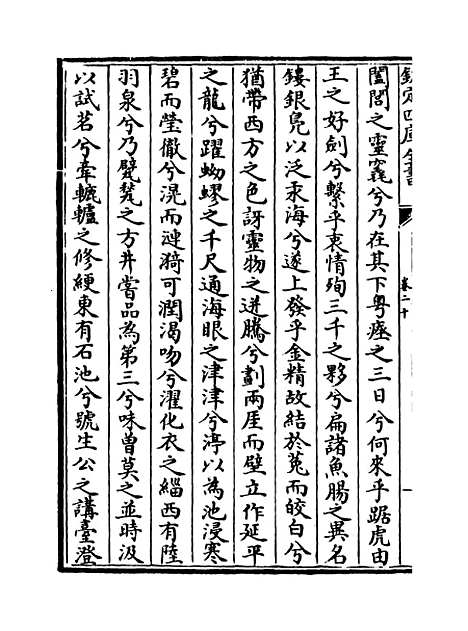 欽定四庫全書
卷二十
闔閭之靈竁兮乃在其下粤瘞之三日兮何來乎踞虎由
王之好劍兮繫乎衷情殉三千之夥兮扁諸魚腸之異名
鏤銀鳬以泛汞海兮遂上發乎金精故結於菟而皎白兮
猶帶西方之色訝靈物之迸騰兮劃兩厓而壁立作延平
之龍兮躍蜿蟉之千尺通海眼之津津兮渟以為池浸寒
碧而瑩徹兮滉而漣漪可潤渴吻兮濯化衣之緇西有陸
羽泉兮乃甃甓之方井嘗品為第三兮味曽莫之並時汲
以試茗兮牽轆轤之修綆東有石池兮號生公之講臺澄